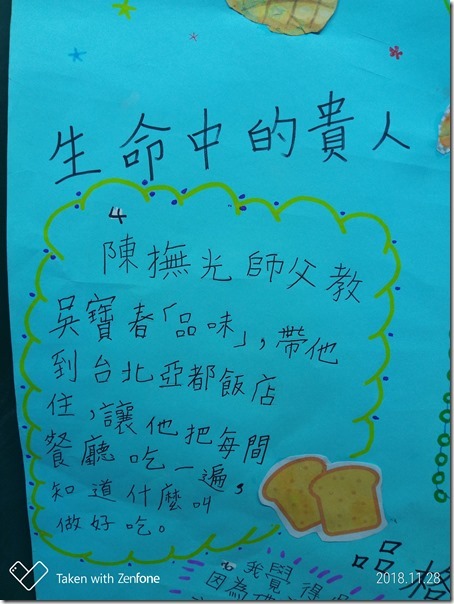 生命中的貴人
4
陳撫光師父教
吳寶春「品味」,帶他
到台北亞都飯店
住,讓他把每間
餐廳吃一遍,
知道什麼叫
做好吃。
我覺得
因為
品格
Taken with Zenfone
2018.11.28